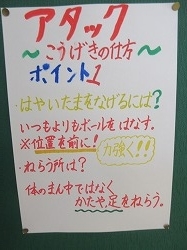 アタック
～こうげきの仕方～
ポイント1
・はやいたまをなげるには?
いつもよりもボールをはなす。
※位置を前に! 力強く!!
・ねらう所は?
体のまん中ではなく
かたや足をねらう。